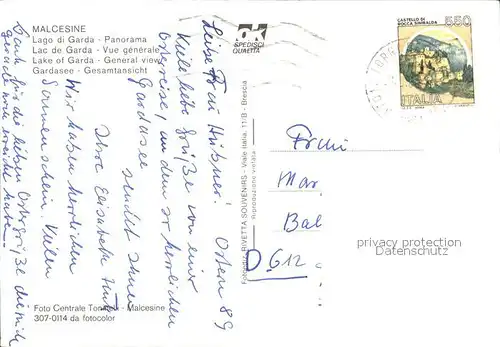 MALCESINE
Lago di Garda - Panorama
Lac de Garda - Vue générale
Lake of Garda - General view
Gardasee - Gesamtansicht
OK
SPEDISCI
QUALITÀ
CASTELLO DI
ROCCA SINIBALDA
550
ITALIA
Liebe Frau Hübner! Ostern 89
Viele liebe Grüße von einer
Osterreise, an den so herrlichen
Gardasee sendet Ihnen
Ihre Elisabeth
Wir haben herrlichen
Sonnenschein. Vielen
Dank für die lieben Ostergrüße die mich
gerade noch erreicht haben.
RIVETTA SOUVENIRS - Viale Italia, 11/B - Brescia
Riproduzione vietata
Frau
Mar
Bal
D 612
privacy protection
Datenschutz
Foto Centrale - Malcesine
307-0114 da fotocolor